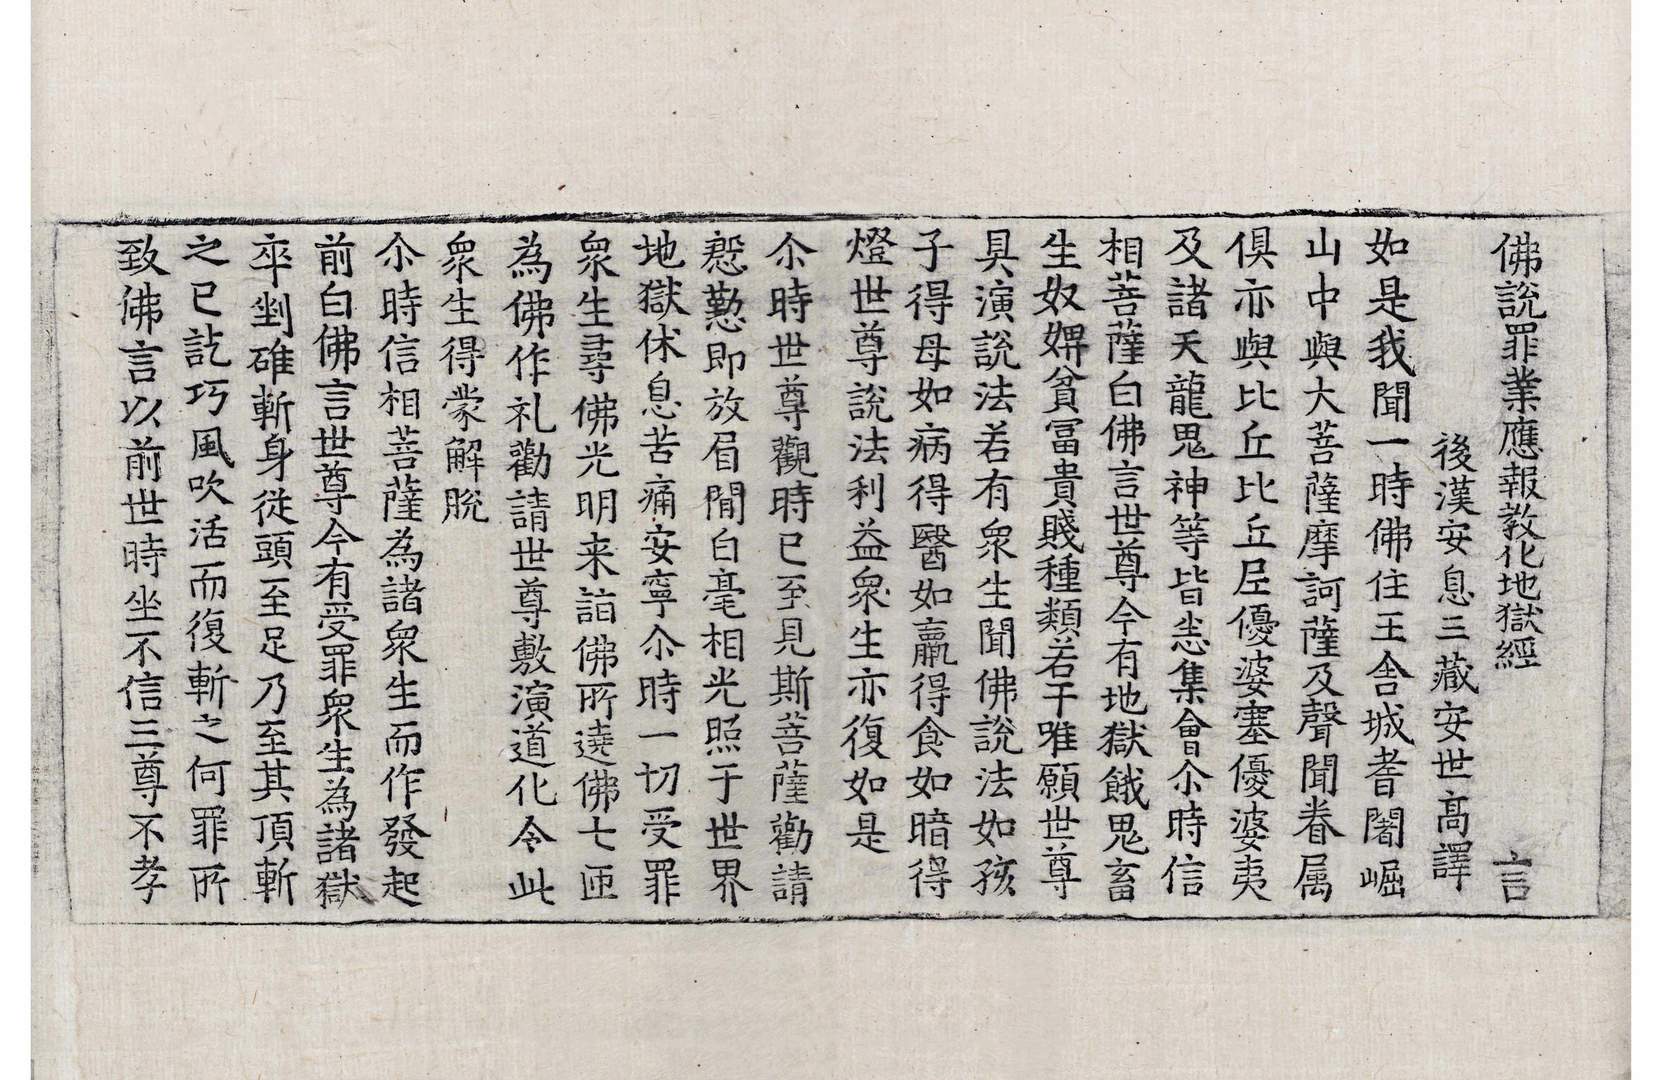 佛說罪業應報教化地獄經　言
後漢安息三藏安世高譯
如是我聞一時佛住王舍城耆闍崛
山中與大菩薩摩訶薩及聲聞眷属
俱亦與比丘比丘尼優婆塞優婆夷
及諸天龍鬼神等皆悉集會尒時信
相菩薩白佛言世尊今有地獄餓鬼畜
生奴婢貧冨貴賤種類若干唯願世尊
具演說法若有眾生聞佛說法如孩
子得母如病得醫如羸得食如暗得
燈世尊說法利益眾生亦復如是
尒時世尊觀時已至見斯菩薩勸請
慇懃即放眉閒白毫相光照于世界
地獄休息苦痛安寧尒時一切受罪
眾生尋佛光明来詣佛所遶佛七匝
為佛作礼勸請世尊敷演道化令此
眾生得蒙解脫
尒時信相菩薩為諸眾生而作發起
前白佛言世尊今有受罪眾生為諸獄
卒剉碓斬身從頭至足乃至其頂斬
之已訖巧風吹活而復斬之何罪所
致佛言以前世時坐不信三尊不孝